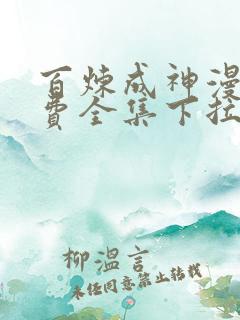 百炼成神漫
费全集下拉
柳溫言
未经同意禁止转载